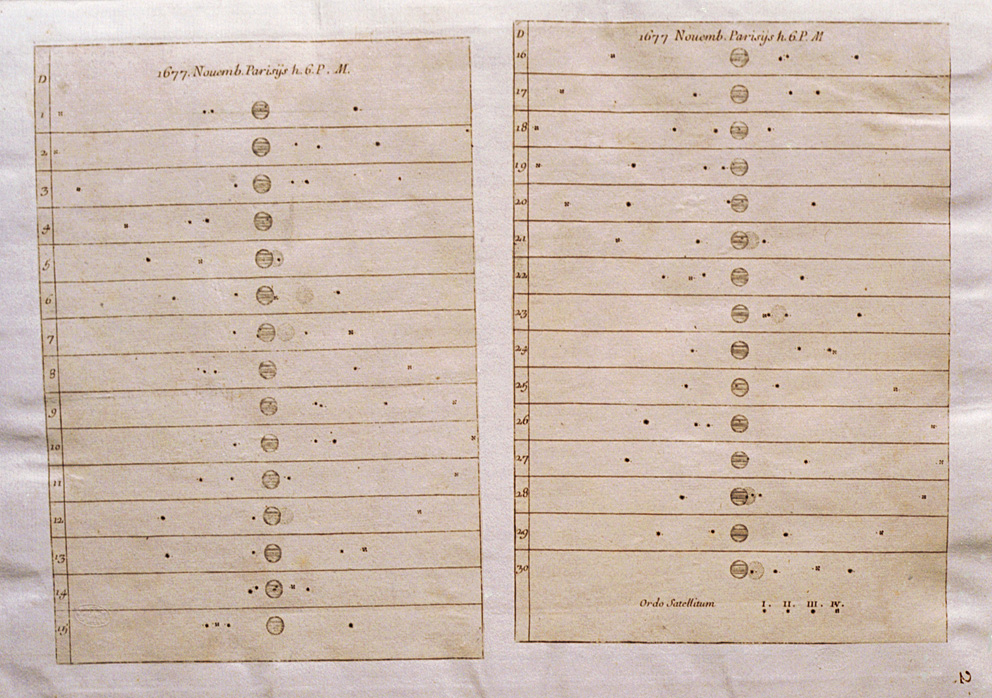 1677. Nouemb. Parisijs h. 6. P. M.
D
1
2
3
4
5
6
7
8
9
10
11
12
13
14
15
1677 Nouemb. Parisijs h. 6. P. M
D
16
17
18
19
20
21
22
23
24
25
26
27
28
29
30
Ordo Satellitum I. II. III. IV.
2